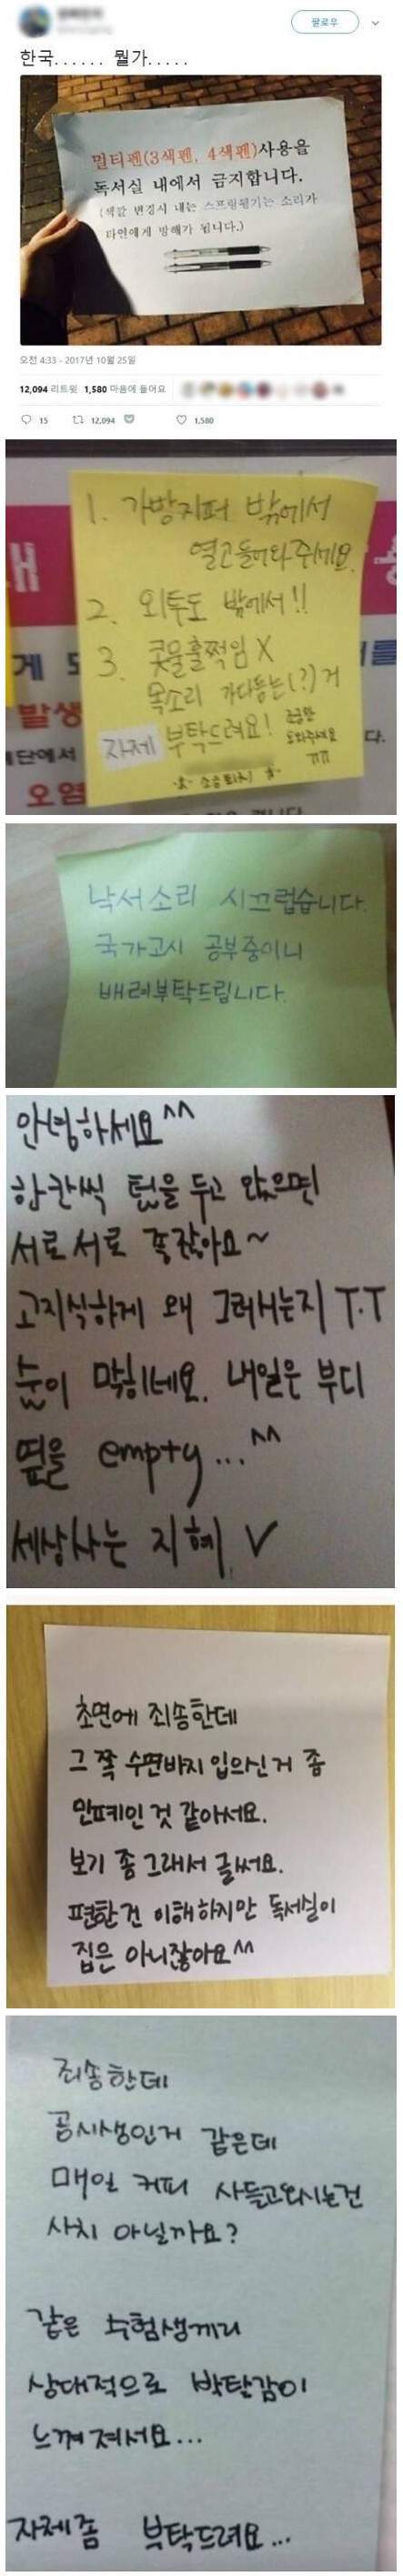 팔로우
한국...... 뭘가.....
멀티펜(3색펜, 4색펜)사용을
독서실 내에서 금지합니다.
(색깔 변경시 내는 스프링튕기는 소리가
타인에게 방해가 됩니다.)
오전 4:33 - 2017년 10월 25일
12,094 리트윗 1,580 마음에 들어요
15 12,094 1,580
1. 가방지퍼 밖에서
열고들어와주세요.
2. 외투도 밖에서!!
3. 콧물훌쩍임 X
목소리 가다듬는(?)거
자제 부탁드려요! 조금만
도와주세요
ㅠㅠ
게 되
를
발생
단에서
다.
오염
낙서소리 시끄럽습니다.
국가고시 공부중이니
배려부탁드립니다.
안녕하세요^^
한칸씩 텀을 두고 앉으면
서로서로 좋잖아요~
고지식하게 왜 그러시는지 T.T
숨이 막히네요. 내일은 부디
옆을 empty...^^
세상사는 지혜 V
초면에 죄송한데
그 쪽 수면바지 입으신거 좀
민폐인 것 같아서요.
보기 좀 그래서 글써요.
편한건 이해하지만 독서실이
집은 아니잖아요^^
죄송한데
공시생인거 같은데
매일 커피 사들고오시는건
사치 아닐까요?
같은 수험생끼리
상대적으로 박탈감이
느껴져서요...
자제좀 부탁드려요...